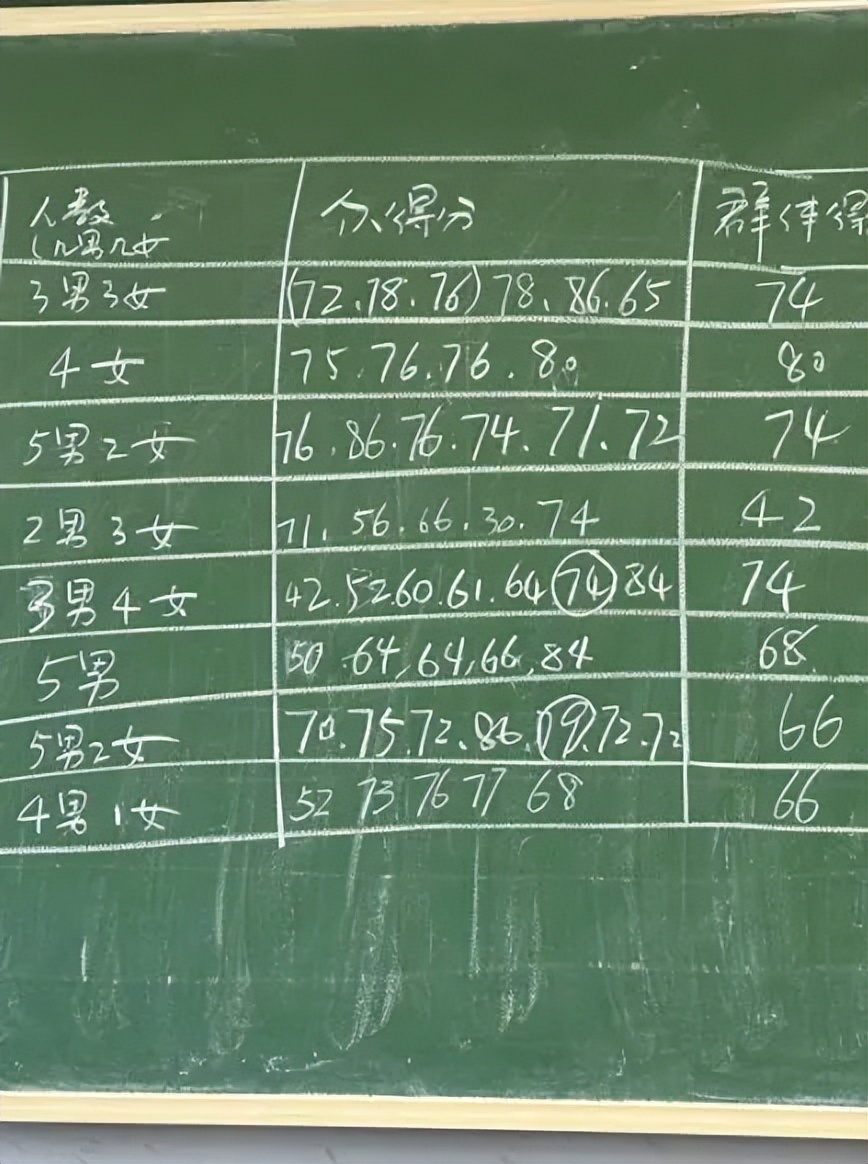 人数 个人得分 群体得
(几男几女
3男3女 (72、78、76)78、86、65 74
4女 75、76、76、80 80
5男2女 76、86、76、74、71、72 74
2男3女 71、56、66、30、74 42
3男4女 42、52、60、61、64 74 84 74
5男 50、64、64、66、84 68
5男2女 70、75、72、86、79、72、72 66
4男1女 52 73 76 77 68 66